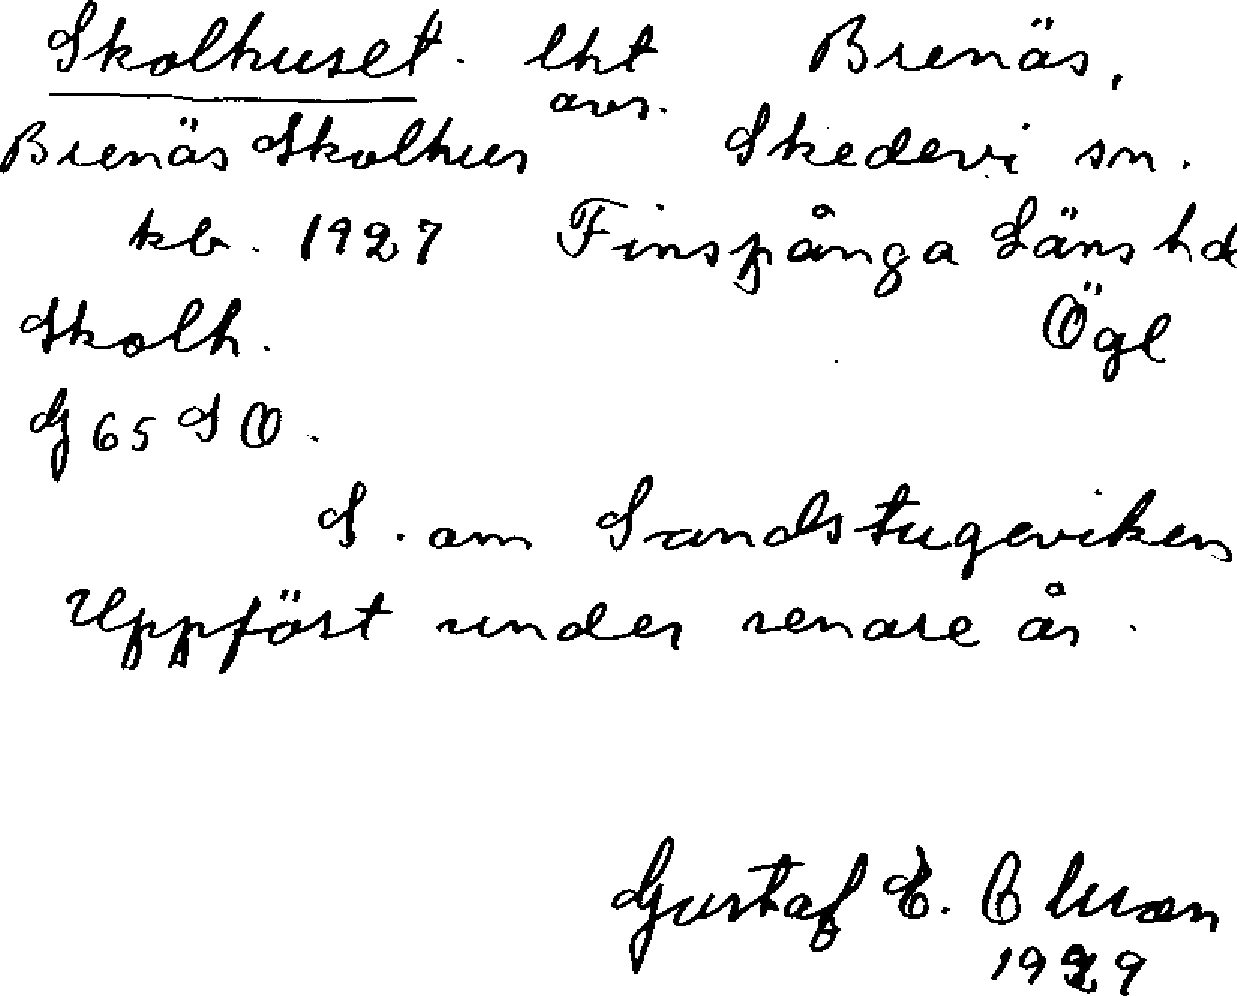 Skolhuset. lht Brenäs,
avs.
Brenäs Skolhus Skedevi sn.
kb. 1927 Finspånga Läns hd
Skolh. Ögl
G 65 SO.
S. om Sandstugeviken
Uppfört under senare år.
Gustaf E.
1929